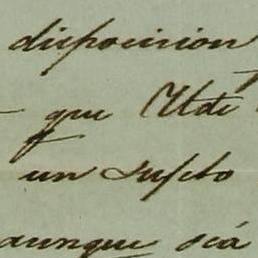 disposicion
que Ude
un sugeto
aunque sea